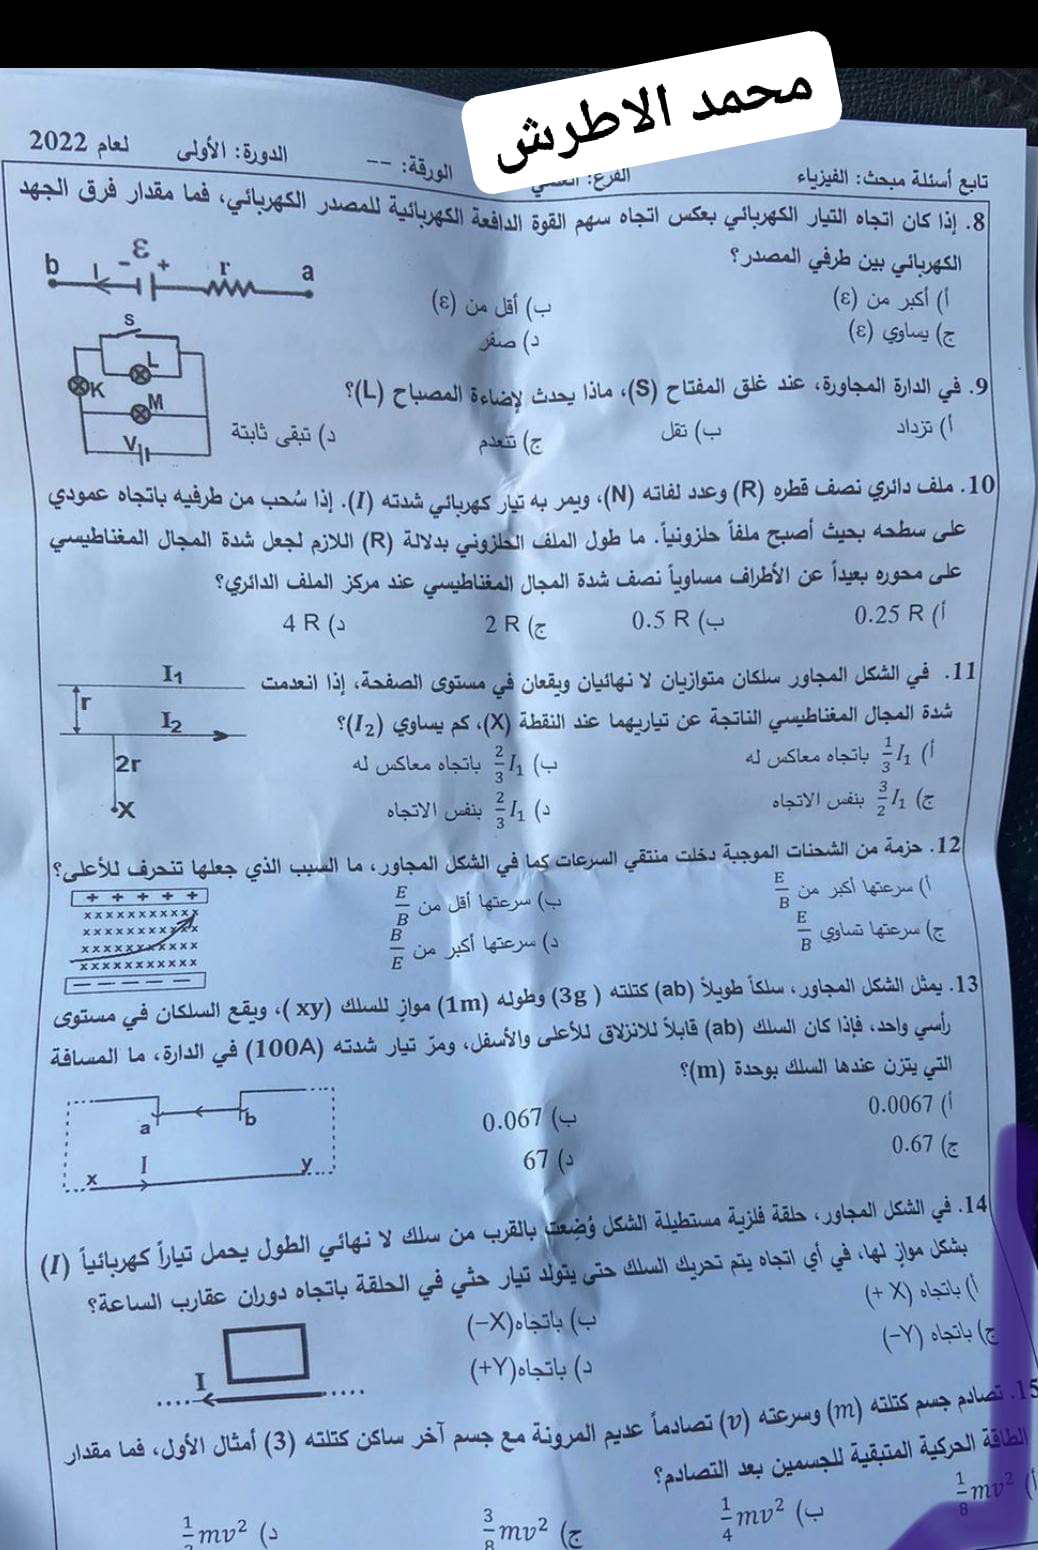 محمد الاطرش
تابع أسئلة مبحث: الفيزياء الفرع: العلمي الورقة: -- الدورة: الأولى لعام 2022
8. إذا كان اتجاه التيار الكهربائي بعكس اتجاه سهم القوة الدافعة الكهربائية للمصدر الكهربائي، فما مقدار فرق الجهد
الكهربائي بين طرفي المصدر؟
b I - ε + r a
أ) أكبر من (ε) ب) أقل من (ε)
ج) يساوي (ε) د) صفر
S L K M V
9. في الدارة المجاورة، عند غلق المفتاح (S)، ماذا يحدث لإضاءة المصباح (L)؟
أ) تزداد ب) تقل ج) تنعدم د) تبقى ثابتة
10. ملف دائري نصف قطره (R) وعدد لفاته (N)، ويمر به تيار كهربائي شدته (I). إذا سُحب من طرفيه باتجاه عمودي
على سطحه بحيث أصبح ملفاً حلزونياً. ما طول الملف الحلزوني بدلالة (R) اللازم لجعل شدة المجال المغناطيسي
على محوره بعيداً عن الأطراف مساوياً نصف شدة المجال المغناطيسي عند مركز الملف الدائري؟
أ) 0.25 R ب) 0.5 R ج) 2 R د) 4 R
11. في الشكل المجاور سلكان متوازيان لا نهائيان ويقعان في مستوى الصفحة، إذا انعدمت
شدة المجال المغناطيسي الناتجة عن تياريهما عند النقطة (X)، كم يساوي (I₂)؟
أ) 1/3 I₁ باتجاه معاكس له ب) 2/3 I₁ باتجاه معاكس له
ج) 3/2 I₁ بنفس الاتجاه د) 2/3 I₁ بنفس الاتجاه
I₁ r I₂ 2r X
12. حزمة من الشحنات الموجبة دخلت منتقي السرعات كما في الشكل المجاور، ما السبب الذي جعلها تنحرف للأعلى؟
أ) سرعتها أكبر من E/B ب) سرعتها أقل من E/B
ج) سرعتها تساوي E/B د) سرعتها أكبر من B/E
+ + + + +
x x x x x x x x x x x
x x x x x x x x x x x
x x x x x x x x x x x
x x x x x x x x x x x
– – – – – –
13. يمثل الشكل المجاور، سلكاً طويلاً (ab) كتلته (3g) وطوله (1m) موازٍ للسلك (xy)، ويقع السلكان في مستوى
رأسي واحد، فإذا كان السلك (ab) قابلاً للانزلاق للأعلى والأسفل، ومرّ تيار شدته (100A) في الدارة، ما المسافة
التي يتزن عندها السلك بوحدة (m)؟
أ) 0.0067 ب) 0.067
ج) 0.67 د) 67
a b x I y
14. في الشكل المجاور، حلقة فلزية مستطيلة الشكل وُضِعت بالقرب من سلك لا نهائي الطول يحمل تياراً كهربائياً (I)
بشكل موازٍ لها، في أي اتجاه يتم تحريك السلك حتى يتولد تيار حثّي في الحلقة باتجاه دوران عقارب الساعة؟
أ) باتجاه (X +) ب) باتجاه(X−)
ج) باتجاه (Y−) د) باتجاه(Y+)
I
15. تصادم جسم كتلته (m) وسرعته (v) تصادماً عديم المرونة مع جسم آخر ساكن كتلته (3) أمثال الأول، فما مقدار
الطاقة الحركية المتبقية للجسمين بعد التصادم؟
أ) 1/8 mv² ب) 1/4 mv² ج) 3/8 mv² د) 1/2 mv²